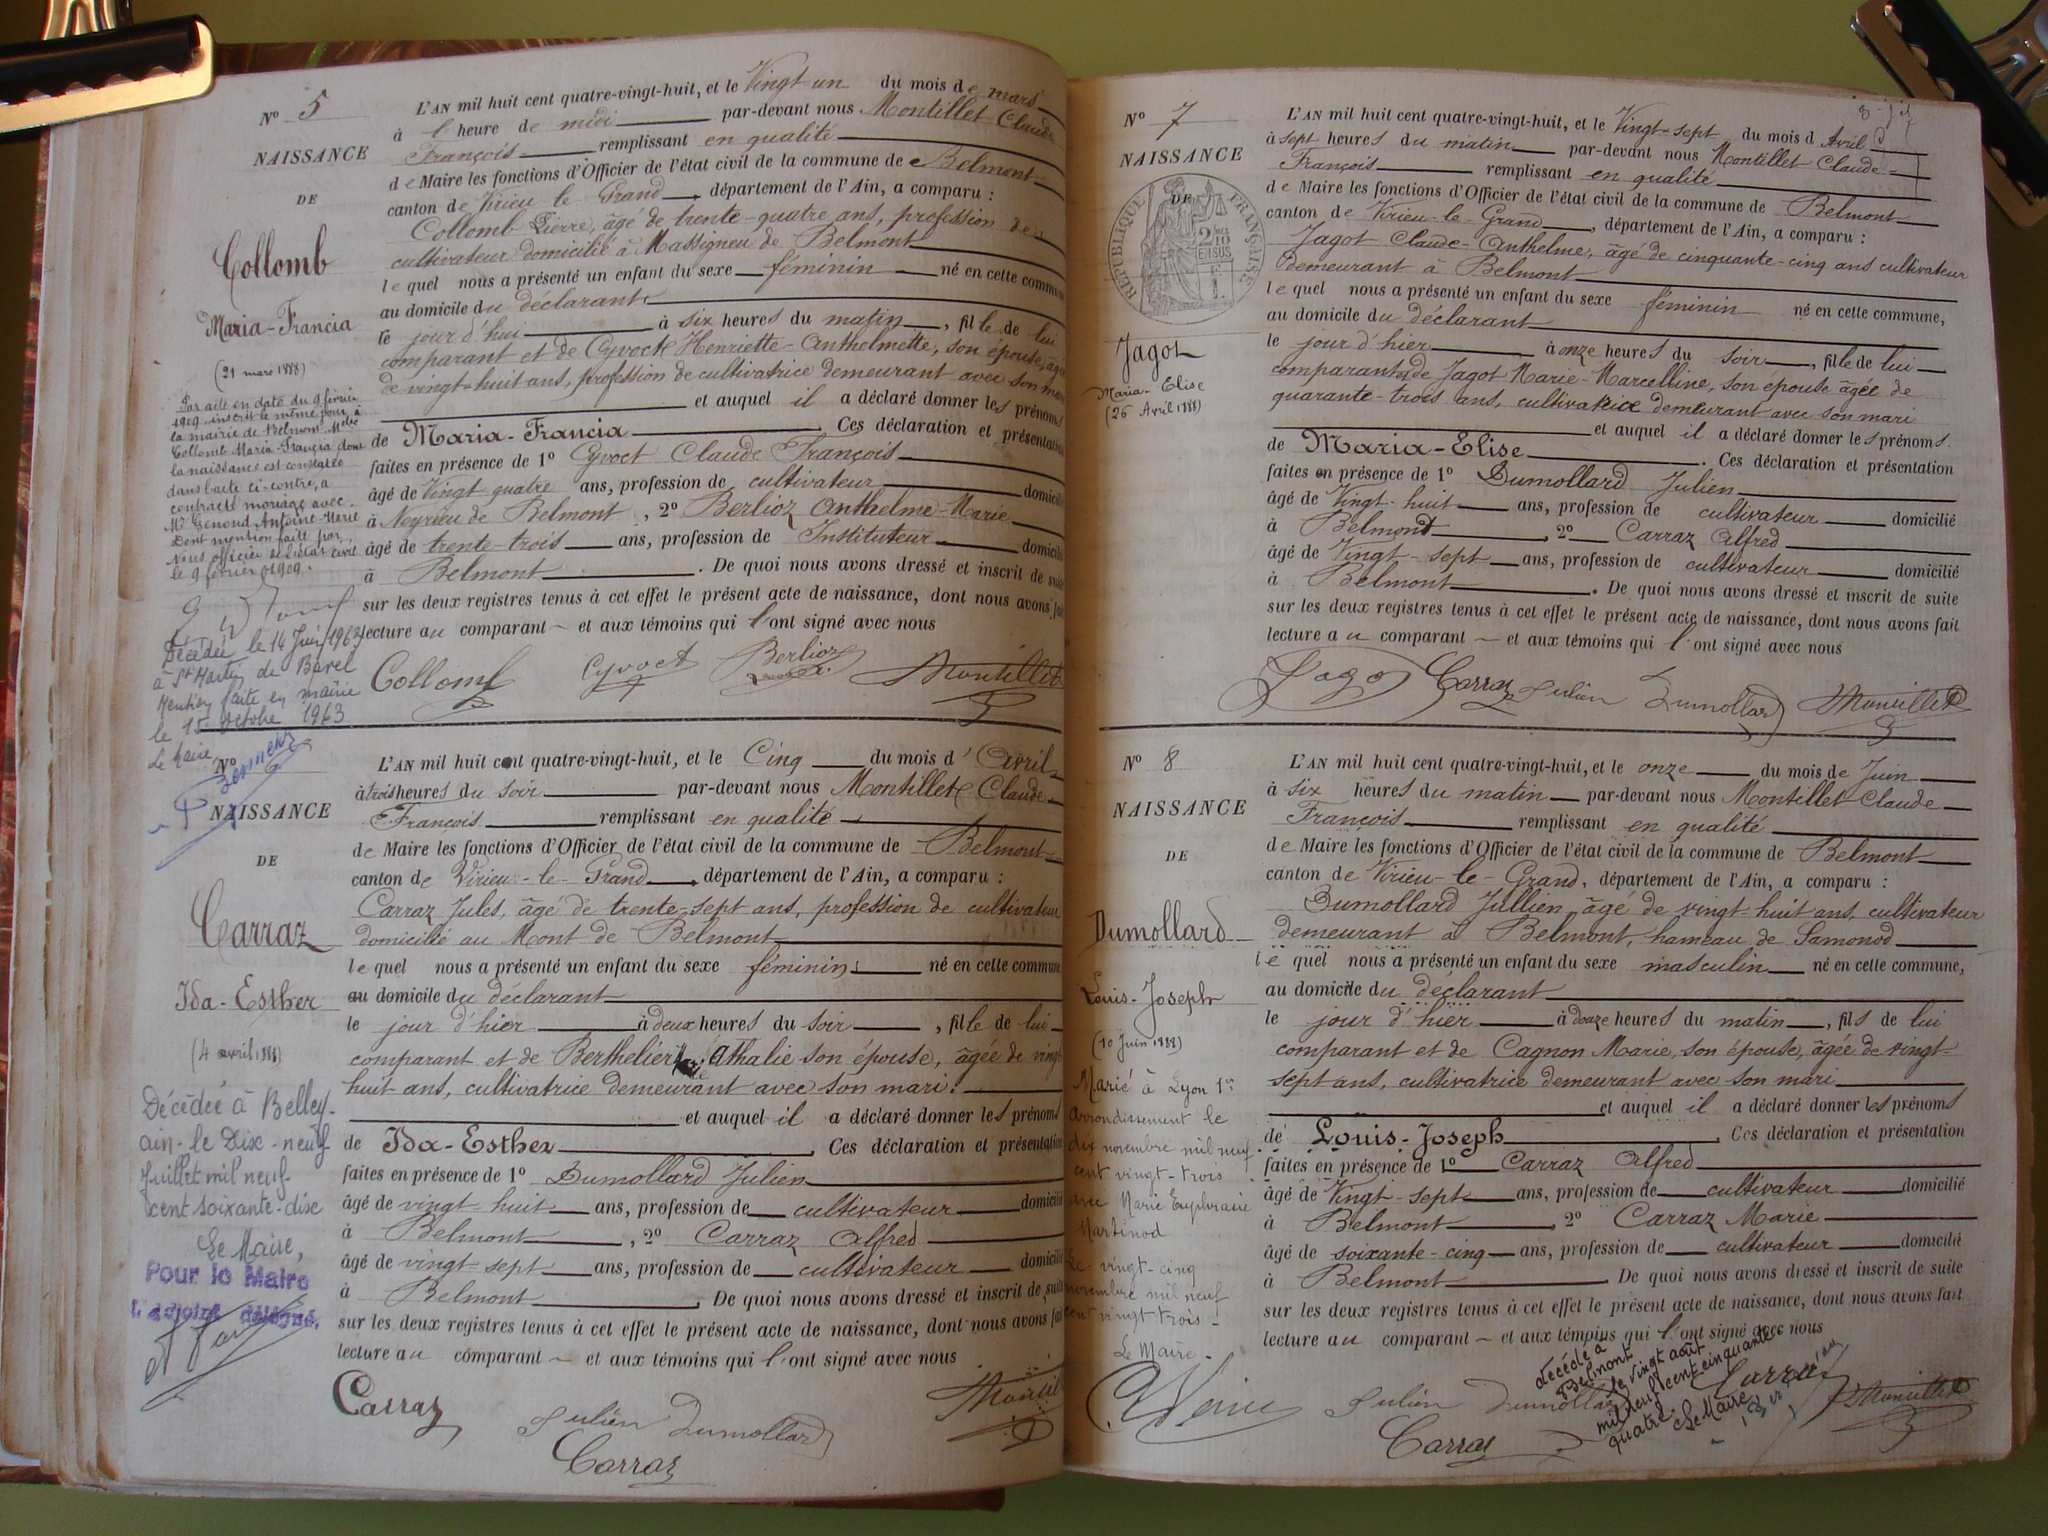 N° 5
NAISSANCE
DE
Collomb
Maria-Francia
(21 mars 1888)
Par acte en date du 9 février
1909 inscrit le même jour à
la mairie de Belmont Melle
Collomb Maria-Francia dont
la naissance est constatée
dans l'acte ci-contre, a
contracté mariage avec
Mr Genond Antoine-Marie
Dont mention faite par
Nous officier de l'état civil
le 9 février 1909.
Décédée le 14 Juin 1963
à St Martin de Bavel
Mention faite en mairie
le 15 octobre 1963
Le Maire,
L'AN mil huit cent quatre-vingt-huit, et le Vingt un du mois de mars
à l'heure de midi par-devant nous Montillet Claude
François remplissant en qualité
de Maire les fonctions d'Officier de l'état civil de la commune de Belmont
canton de Virieu le Grand, département de l'Ain, a comparu :
Collomb Pierre, âgé de trente-quatre ans, profession de
cultivateur domicilié à Massigneu de Belmont
lequel nous a présenté un enfant du sexe féminin né en cette commune
au domicile du déclarant
le jour d'hui à six heures du matin, fille de lui
comparant et de Cyvoct Henriette-Anthelmette, son épouse, âgée
de vingt-huit ans, profession de cultivatrice demeurant avec son mari
et auquel il a déclaré donner les prénoms
de Maria-Francia. Ces déclaration et présentation
faites en présence de 1° Cyvoct Claude François
âgé de Vingt quatre ans, profession de cultivateur domicilié
à Neyrieu de Belmont, 2° Berlioz Anthelme-Marie
âgé de trente-trois ans, profession de Instituteur domicilié
à Belmont. De quoi nous avons dressé et inscrit de suite
sur les deux registres tenus à cet effet le présent acte de naissance, dont nous avons fait
lecture au comparant et aux témoins qui l'ont signé avec nous
Collomb Cyvoct Berlioz Montillet
N°
NAISSANCE
DE
Carraz
Ida-Esther
(4 avril 1888)
Décédée à Belley-
ain-le Dix-neuf
Juillet mil neuf
cent soixante-dix
Le Maire,
Pour le Maire
L'adjoint délégué,
L'AN mil huit cent quatre-vingt-huit, et le Cinq du mois d'Avril
à trois heures du soir par-devant nous Montillet Claude
François remplissant en qualité
de Maire les fonctions d'Officier de l'état civil de la commune de Belmont
canton de Virieu-le-Grand, département de l'Ain, a comparu :
Carraz Jules, âgé de trente-sept ans, profession de cultivateur
domicilié au Mont de Belmont
lequel nous a présenté un enfant du sexe féminin né en cette commune
au domicile du déclarant
le jour d'hier à deux heures du soir, fille de lui
comparant et de Berthelier Athalie son épouse, âgée de vingt
huit ans, cultivatrice demeurant avec son mari.
et auquel il a déclaré donner les prénoms
de Ida-Esther. Ces déclaration et présentation
faites en présence de 1° Dumollard Julien
âgé de vingt huit ans, profession de cultivateur domicilié
à Belmont, 2° Carraz Alfred
âgé de vingt-sept ans, profession de cultivateur domicilié
à Belmont. De quoi nous avons dressé et inscrit de suite
sur les deux registres tenus à cet effet le présent acte de naissance, dont nous avons fait
lecture au comparant et aux témoins qui l'ont signé avec nous
Carraz Julien Dumollard Montillet
Carraz
N° 7
NAISSANCE
DE
RÉPUBLIQUE FRANÇAISE
2/10 EN SUS
Jagot
Maria-Elise
(26 Avril 1888)
L'AN mil huit cent quatre-vingt-huit, et le Vingt-sept du mois d'Avril
à sept heures du matin par-devant nous Montillet Claude-
François remplissant en qualité
de Maire les fonctions d'Officier de l'état civil de la commune de Belmont
canton de Virieu-le-Grand, département de l'Ain, a comparu :
Jagot Claude-Anthelme, âgé de cinquante-cinq ans cultivateur
demeurant à Belmont
lequel nous a présenté un enfant du sexe féminin né en cette commune,
au domicile du déclarant
le jour d'hier à onze heures du soir, fille de lui
comparant et de Jagot Marie-Marcelline, son épouse âgée de
quarante-trois ans, cultivatrice demeurant avec son mari
et auquel il a déclaré donner les prénoms
de Maria-Elise. Ces déclaration et présentation
faites en présence de 1° Dumollard Julien
âgé de Vingt-huit ans, profession de cultivateur domicilié
à Belmont, 2° Carraz Alfred
âgé de Vingt-sept ans, profession de cultivateur domicilié
à Belmont. De quoi nous avons dressé et inscrit de suite
sur les deux registres tenus à cet effet le présent acte de naissance, dont nous avons fait
lecture au comparant et aux témoins qui l'ont signé avec nous
Jagot Carraz Julien Dumollard Montillet
N° 8
NAISSANCE
DE
Dumollard
Louis-Joseph
(10 Juin 1888)
Marié à Lyon 1er
arrondissement le
dix novembre mil neuf
cent vingt-trois
avec Marie Euphrasie
Martinod
Le vingt-cinq
novembre mil neuf
cent vingt trois-
Le Maire.
L'AN mil huit cent quatre-vingt-huit, et le onze du mois de Juin
à six heures du matin par-devant nous Montillet Claude
François remplissant en qualité
de Maire les fonctions d'Officier de l'état civil de la commune de Belmont
canton de Virieu-le-Grand, département de l'Ain, a comparu :
Dumollard Jullien âgé de vingt-huit ans, cultivateur
demeurant à Belmont, hameau de Samonod
lequel nous a présenté un enfant du sexe masculin né en cette commune,
au domicile du déclarant
le jour d'hier à douze heures du matin, fils de lui
comparant et de Cagnon Marie, son épouse, âgée de vingt-
sept ans, cultivatrice demeurant avec son mari
et auquel il a déclaré donner les prénoms
de Louis-Joseph. Ces déclaration et présentation
faites en présence de 1° Carraz Alfred
âgé de Vingt-sept ans, profession de cultivateur domicilié
à Belmont, 2° Carraz Marie
âgé de soixante-cinq ans, profession de cultivateur domicilié
à Belmont. De quoi nous avons dressé et inscrit de suite
sur les deux registres tenus à cet effet le présent acte de naissance, dont nous avons fait
lecture au comparant et aux témoins qui l'ont signé avec nous
décédé à
Belmont
le vingt août
mil neuf cent cinquante
quatre. Le Maire
Julien Dumollard Carraz Montillet
Carraz